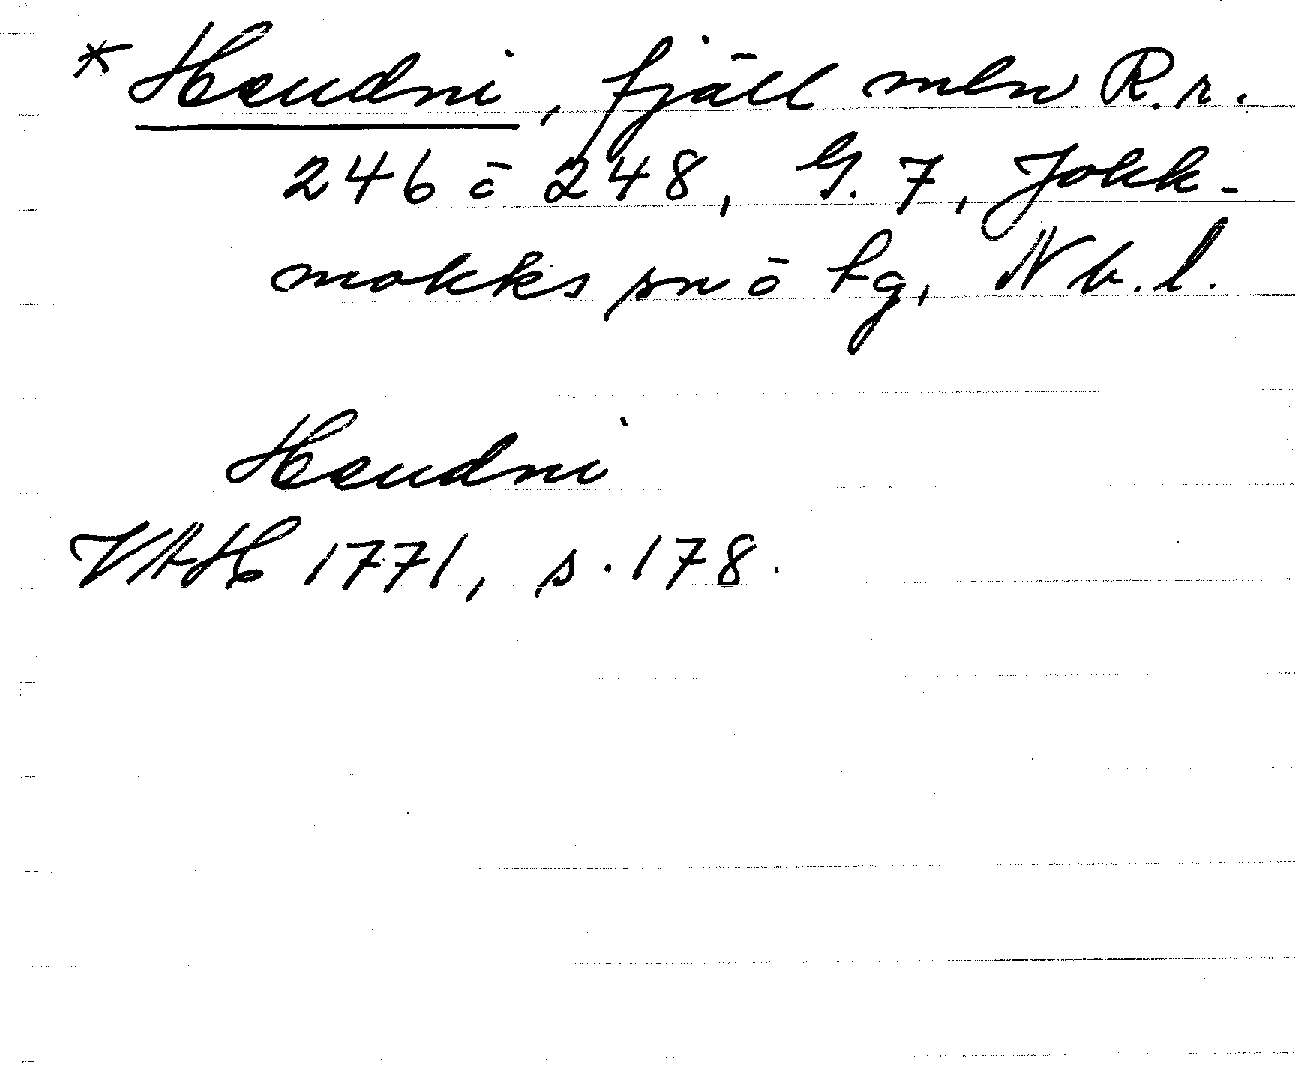 * Haudni, fjäll mln R.r.
246 o 248, G. 7, Jokk-
mokks sn o tg, Nb. l.
Haudni
VAH 1771, s. 178.